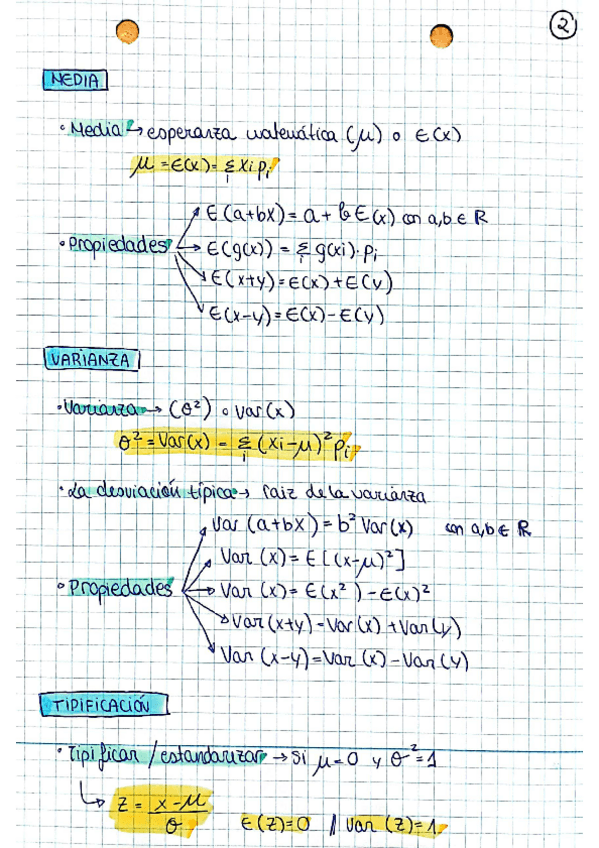 2
MEDIA
• Media → esperanza matemática (μ) o E(x)
μ = E(x) = Σi xi pi
E(a+bX) = a + b E(x) con a,b ∈ R
• Propiedades → E(g(x)) = Σi g(xi)·pi
E(x+y) = E(x) + E(y)
E(x-y) = E(x) - E(y)
VARIANZA
• Varianza → (θ²) o var(x)
θ² = Var(x) = Σi (xi-μ)² pi
• La desviación típica → raiz de la varianza
Var (a+bX) = b² Var(x) con a,b ∈ R
Var (x) = E[(x-μ)²]
• Propiedades → Var (x) = E(x²) - E(x)²
Var(x+y) = Var(x) + Var(y)
Var (x-y) = Var (x) - Var (y)
TIPIFICACIÓN
• Tipificar / estandarizar → si μ = 0 y θ² = 1
↳ z = x-μ / θ E(z) = 0 // Var (z) = 1